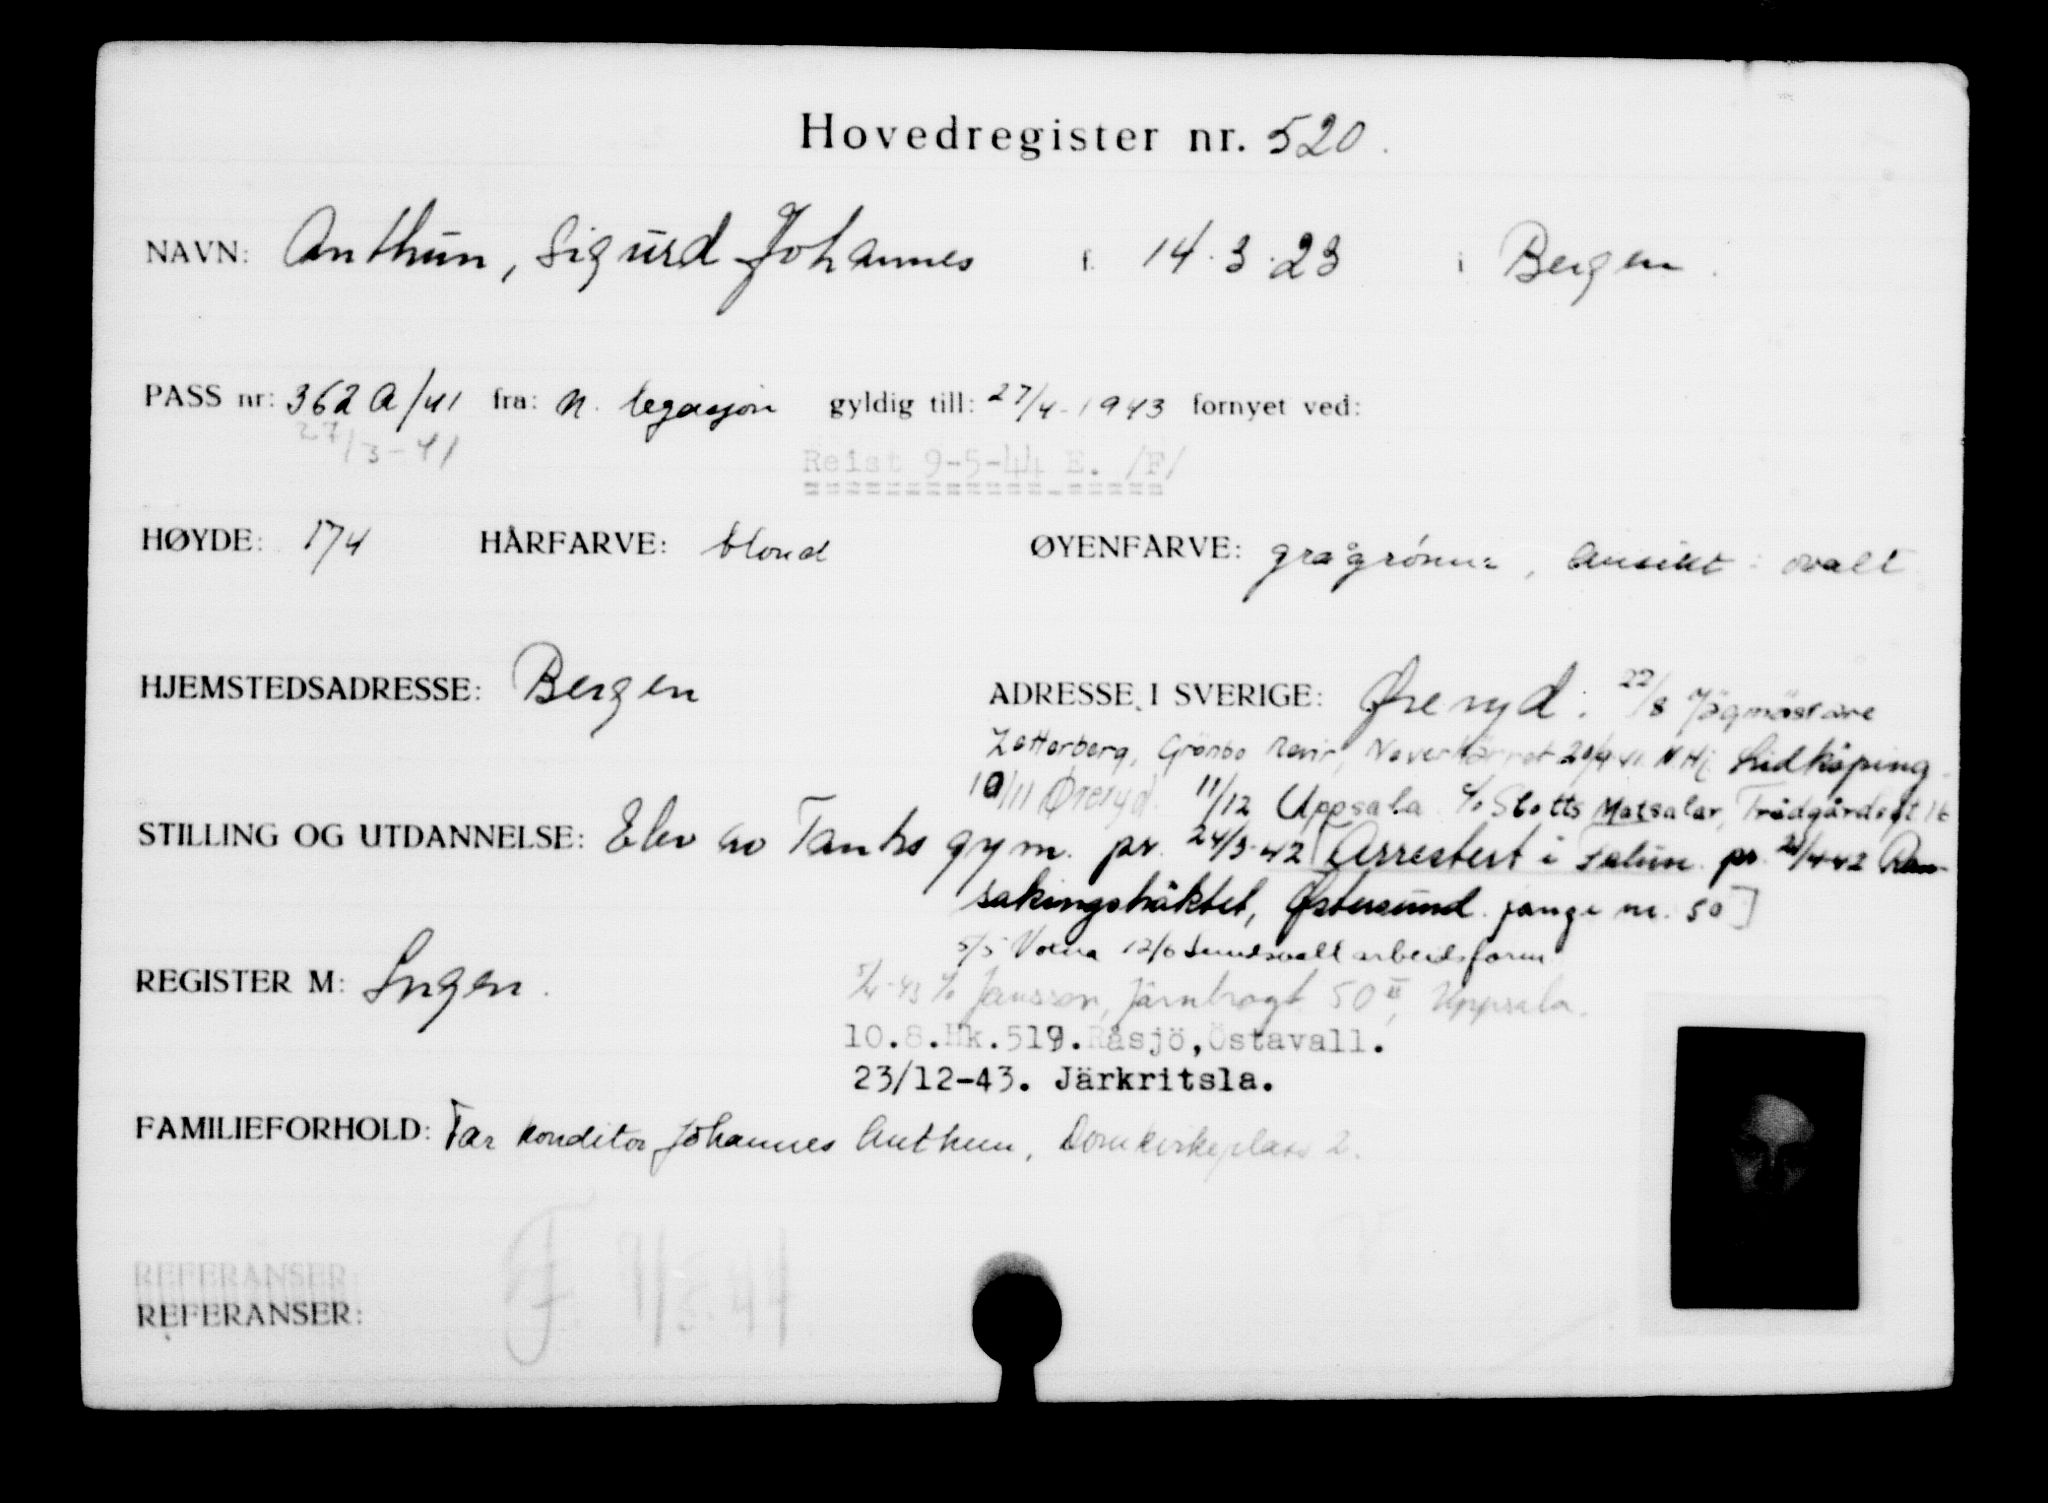 Hovedregister nr. 520.
NAVN: Anthun, Sigurd Johannes f. 14.3.23 i Bergen.
PASS nr: 362 A/41 fra: N. legasjon gyldig till: 27/4-1943 fornyet ved:
27/3-41
Reist 9-5-44 E. /F/
HØYDE: 174 HÅRFARVE: blond ØYENFARVE: grågrønne, Ansikt: ovalt
HJEMSTEDSADRESSE: Bergen ADRESSE I SVERIGE: Øreryd. 22/8 Jägmästare
Zetterberg, Grönbo Revir, 20/9 41 N Hj. Lidköping.
10/11 Øreryd. 11/12 Uppsala c/o Slotts Matsalar, Trädgårdsgt 16
STILLING OG UTDANNELSE: Elev av Tanks gym. pr. 24/3-42 [Arrestert i Falun. pr. 21/4-42 Ran-
sakingshäktet, Østersund. fange nr. 50]
5/5 Voxna 12/6 Sundsvall arbeidsform
REGISTER M: Ingen.
5/4-43 c/o Jansson, Järnbrogt 50 II, Uppsala.
10.8.Hk.519.Råsjö,Östavall.
23/12-43. Järkritsla.
FAMILIEFORHOLD: Far konditor Johannes Anthun, Domkirkeplass 2.
REFERANSER:
F 9/5.44
REFERANSER: